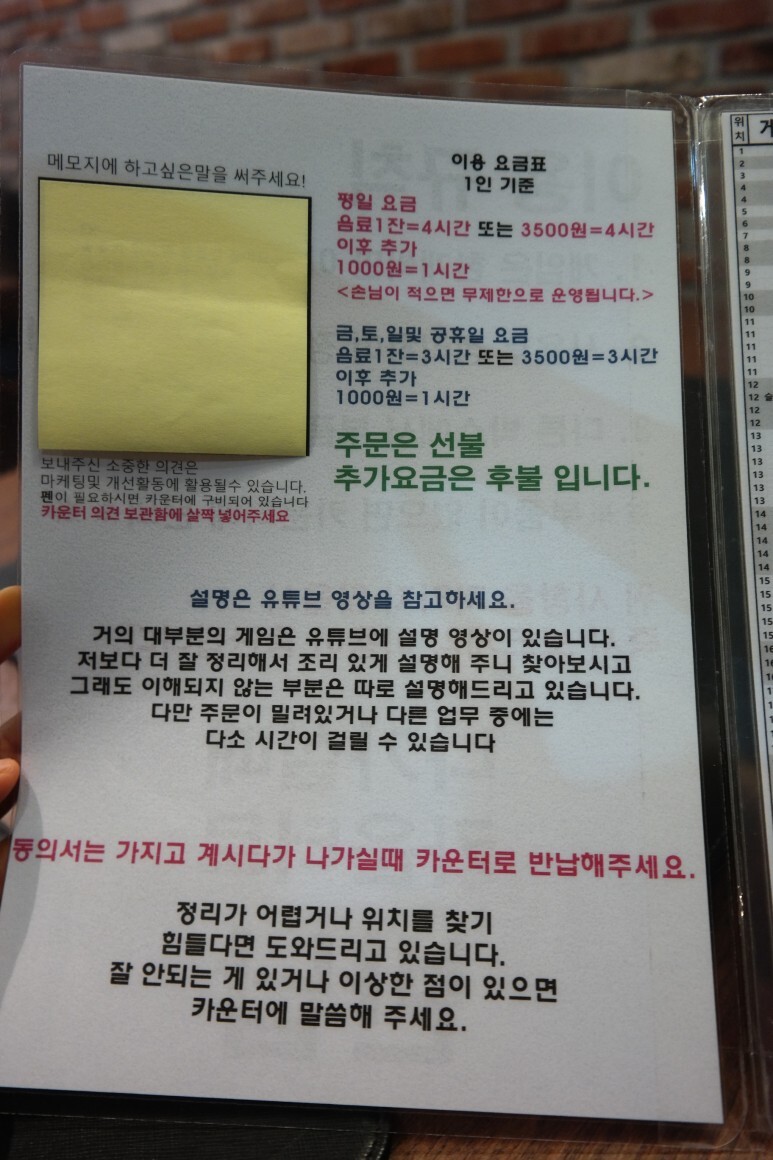 메모지에 하고싶은말을 써주세요!
보내주신 소중한 의견은
마케팅및 개선활동에 활용될수 있습니다.
펜이 필요하시면 카운터에 구비되어 있습니다
카운터 의견 보관함에 살짝 넣어주세요
이용 요금표
1인 기준
평일 요금
음료1잔=4시간 또는 3500원=4시간
이후 추가
1000원=1시간
<손님이 적으면 무제한으로 운영됩니다.>
금,토,일및 공휴일 요금
음료1잔=3시간 또는 3500원=3시간
이후 추가
1000원=1시간
주문은 선불
추가요금은 후불 입니다.
설명은 유튜브 영상을 참고하세요.
거의 대부분의 게임은 유튜브에 설명 영상이 있습니다.
저보다 더 잘 정리해서 조리 있게 설명해 주니 찾아보시고
그래도 이해되지 않는 부분은 따로 설명해드리고 있습니다.
다만 주문이 밀려있거나 다른 업무 중에는
다소 시간이 걸릴 수 있습니다
동의서는 가지고 계시다가 나가실때 카운터로 반납해주세요.
정리가 어렵거나 위치를 찾기
힘들다면 도와드리고 있습니다.
잘 안되는 게 있거나 이상한 점이 있으면
카운터에 말씀해 주세요.
위치
1
2
3
4
4
5
6
7
8
9
9
10
10
11
11
11
11
11
12
12
12
12
13
13
13
13
13
13
14
14
14
14
14
15
15
15
15